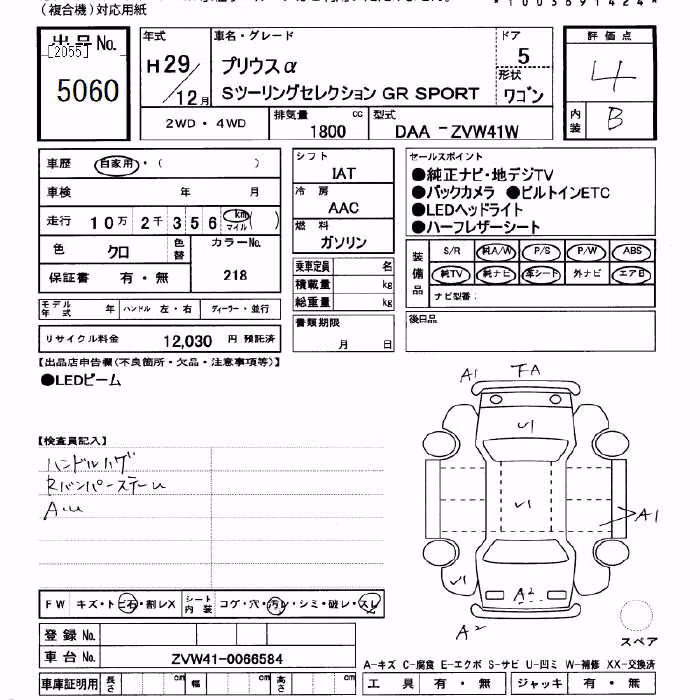 (複合機)対応用紙
*1003691424*
出品No.
[2055]
5060
年式
H29/12月
車名・グレード
プリウスα
Sツーリングセレクション GR SPORT
ドア
5
形状
ワゴン
評価点
4
内装
B
2WD・4WD
排気量
1800 cc
型式
DAA -ZVW41W
車歴
自家用・( )
車検 年 月
走行 10万2千356 km マイル ( )
色 クロ
色替
カラーNo.
218
保証書 有・無
シフト
IAT
冷房
AAC
燃料
ガソリン
乗車定員 名
積載量 kg
総重量 kg
書類期限
月 日
セールスポイント
●純正ナビ・地デジTV
●バックカメラ ●ビルトインETC
●LEDヘッドライト
●ハーフレザーシート
装備品
S/R 純A/W P/S P/W ABS
純TV 純ナビ 革シート 外ナビ エアB
ナビ型番:
後日品
モデル年式 年 ハンドル 左・右 ディーラー・並行
リサイクル料金 12,030 円 預託済
【出品店申告欄(不良箇所・欠品・注意事項等)】
●LEDビーム
【検査員記入】
ハンドルハゲ
RバンパーステーU
A.U
A1 FA
U1
U1
A1
U1
A2
A2
スペア
FW キズ・トビ石・割レX
シート内装 コゲ・穴・汚レ・シミ・破レ・スレ
登録No.
車台No. ZVW41-0066584
車庫証明用 長さ cm 幅 cm 高さ cm
A-キズ C-腐食 E-エクボ S-サビ U-凹ミ W-補修 XX-交換済
工具 有・無 ジャッキ 有・無